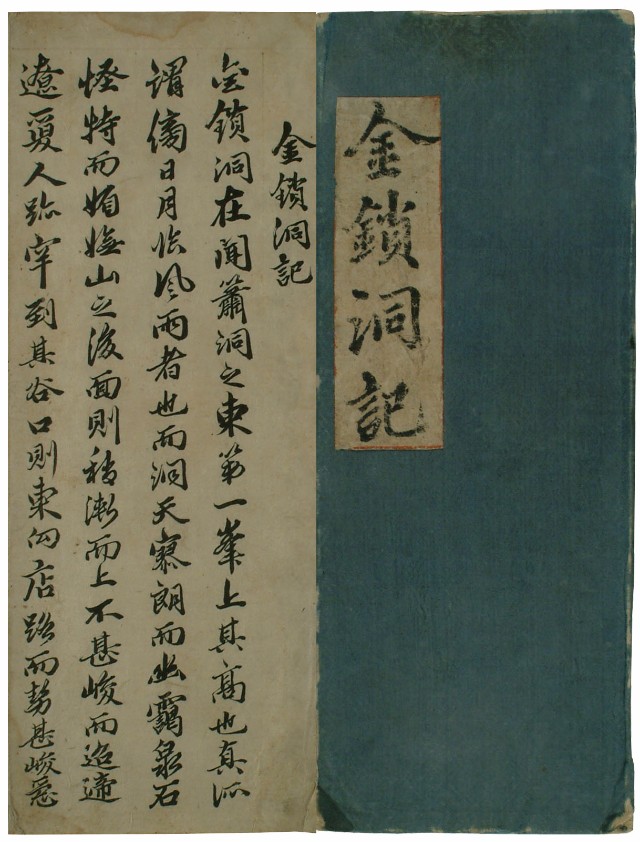 金鎖洞記
金鎖洞記
金鎖洞在聞簫洞之東第一峯上其高也真所
謂傍日月臨風雨者也而洞天寥朗而幽靄泉石
怪特而媚嫵山之後面則稍漸而上不甚峻而迢遞
遼夐人跡罕到其谷口則東
店路而勢甚峻